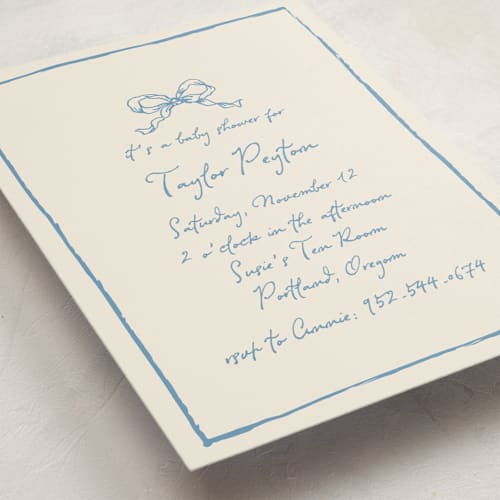 it's a baby shower for
Taylor Peyton
Saturday, November 12
2 o'clock in the afternoon
Susie's Tea Room
Portland, Oregon
rsvp to Annie: 952.544.0674